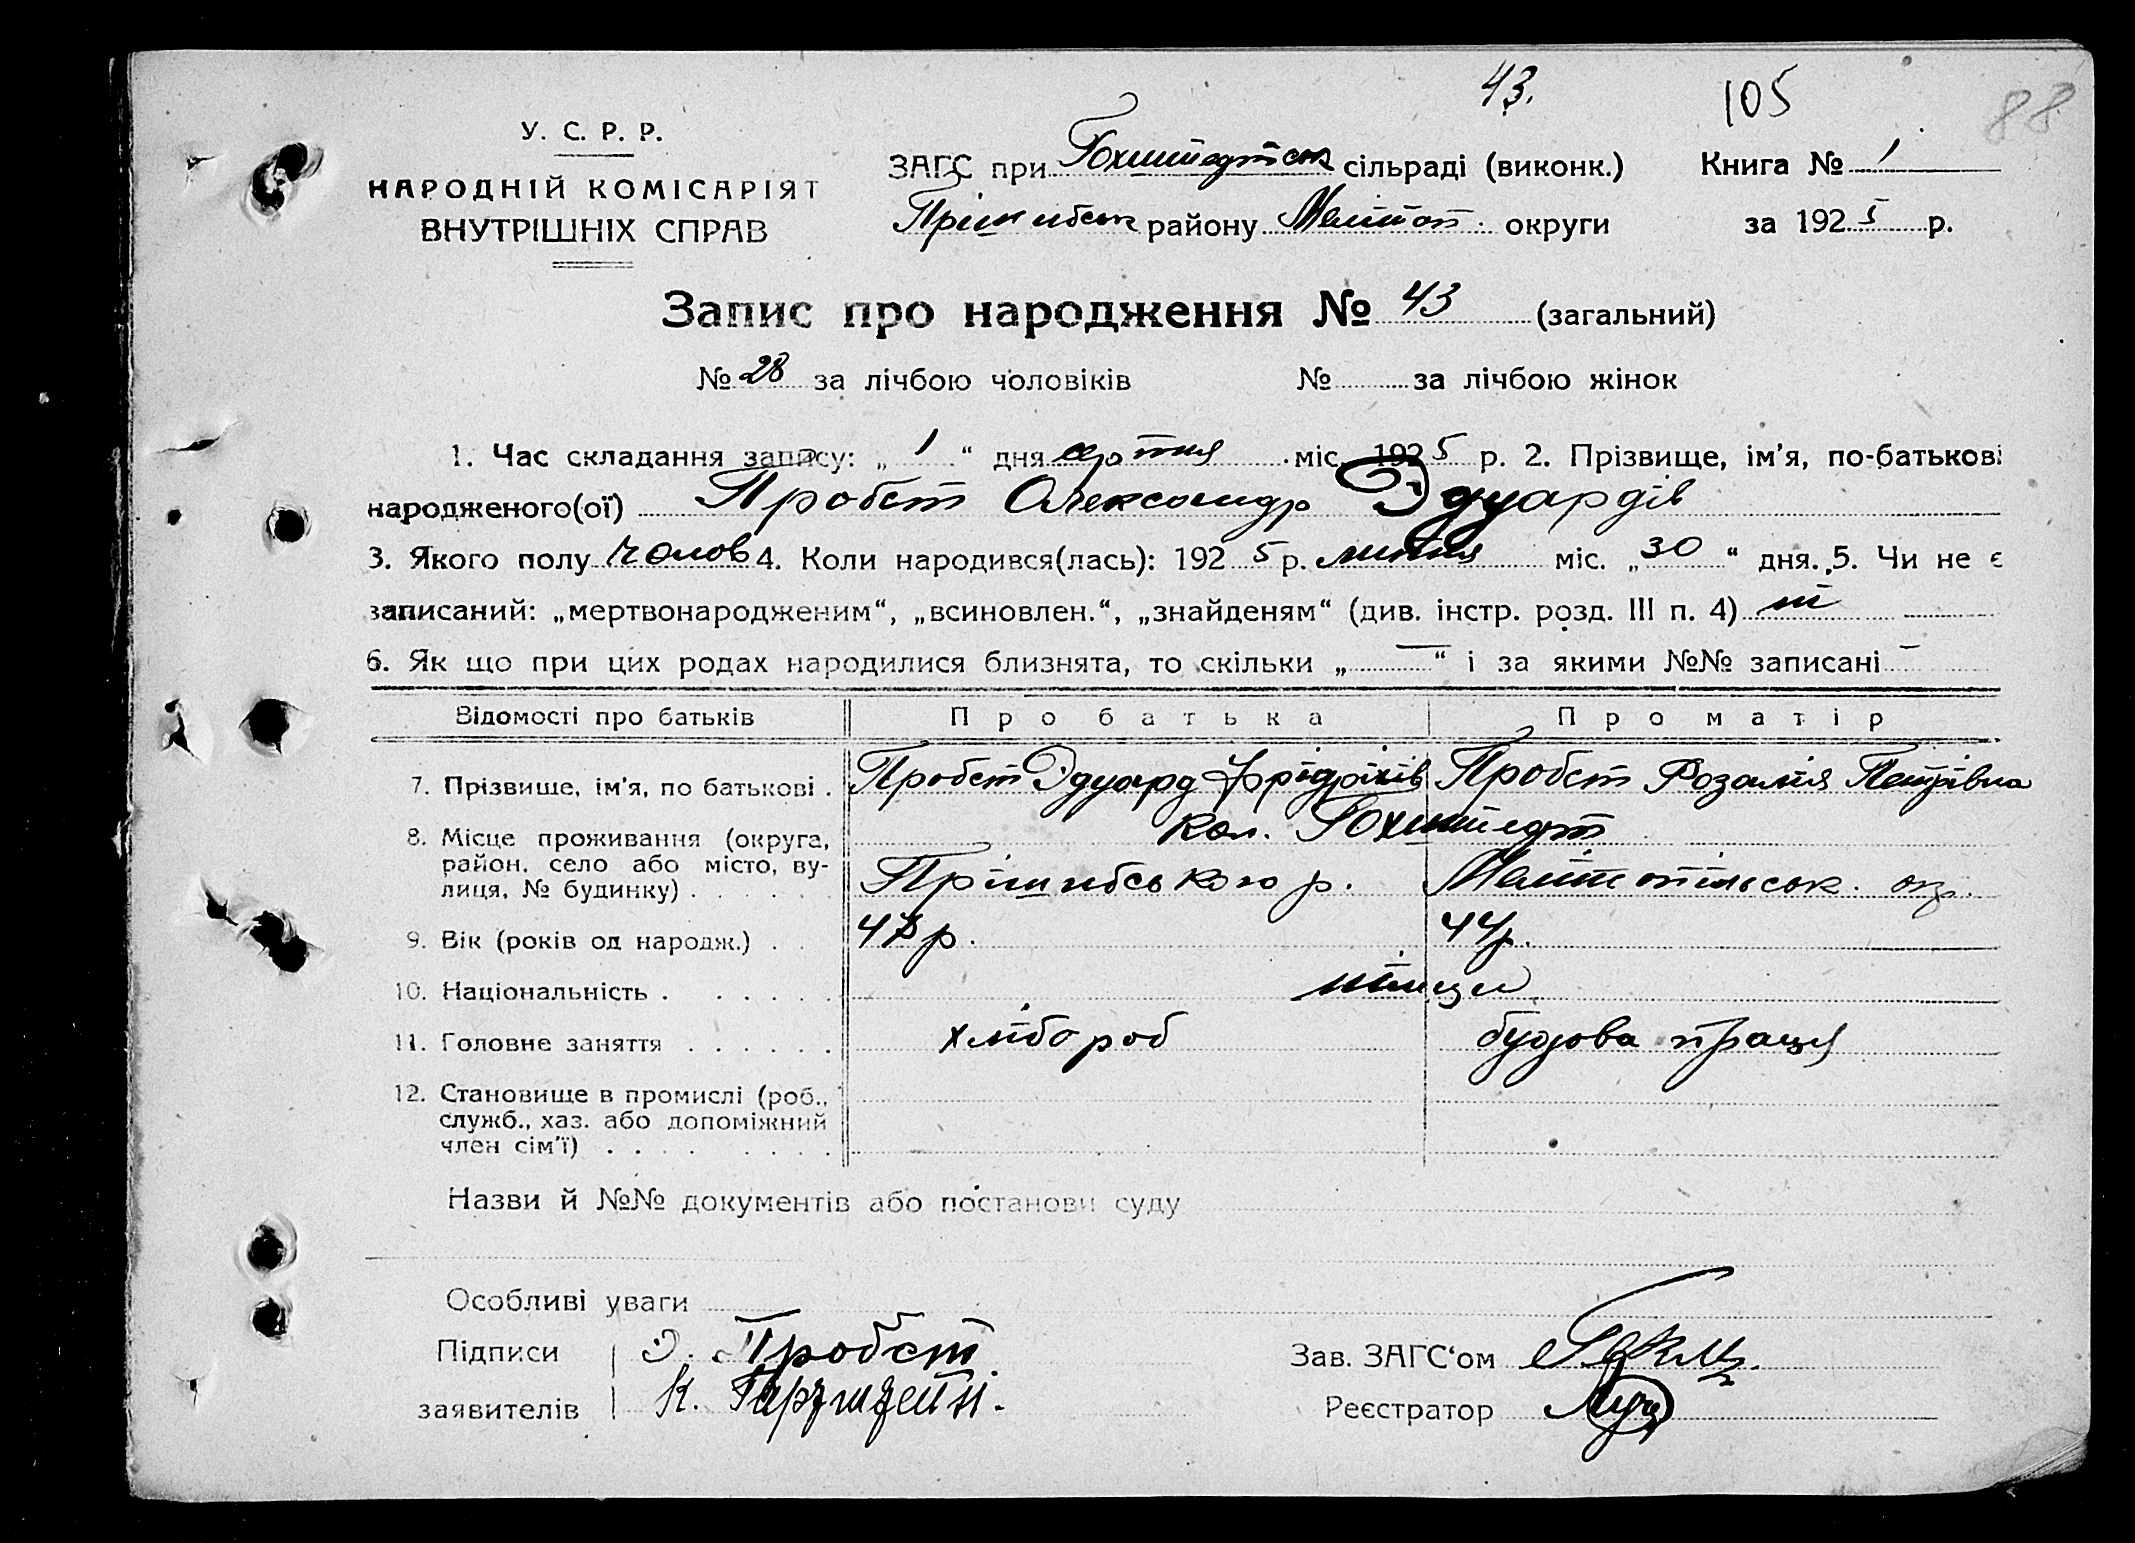 43.
105
88
У. С. Р. Р.
НАРОДНІЙ КОМІСАРІЯТ
ВНУТРІШНІХ СПРАВ
ЗАГС при Гохштедтськ сільраді (виконк.) Книга № 1
Прішибськ району Меліт оп. округи за 1925 р.
Запис про народження № 43 (загальний)
№ 28 за лічбою чоловіків № за лічбою жінок
1. Час складання запису: „ 1 “ дня серпня міс. 1925 р. 2. Прізвище, ім'я, по-батькові
народженого(ої) Пробст Олександр Эдуардів
3. Якого полу чолов 4. Коли народився(лась): 1925 р. липня міс. „ 30 “ дня. 5. Чи не є
записаний: „мертвонародженим“, „всиновлен.“, „знайденям“ (див. інстр. розд. III п. 4) ні
6. Як що при цих родах народилися близнята, то скільки „ — “ і за якими №№ записані —
Відомості про батьків Про батька Про матір
7. Прізвише, ім'я, по батькові . Пробст Эдуард Фрідріхів Пробст Розалія Петрівна
кол. Гохштедт
8. Місце проживання (округа,
район, село або місто, ву-
лиця, № будинку) . . . . . Прішибського р. Мелітопільськ. окр.
9. Вік (років од народж.) . 47 р. 44 р.
10. Національність . . . . . . німци
11. Головне заняття . . . . . . хлібороб будова праця
12. Становище в промислі (роб.,
служб., хаз. або допоміжний
член сім'ї) . . . . . . . .
Назви й №№ документів або постанови суду
Особливі уваги
Підписи Э. Пробст Зав. ЗАГС‘ом
заявителів К. Реєстратор